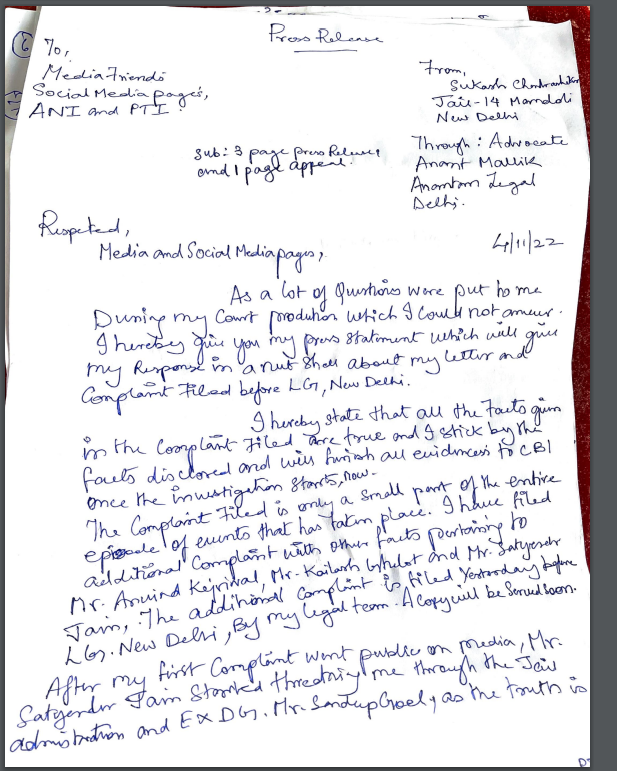 Press Release
6
To,
Media Friends
Social Media pages,
ANI and PTI.
From,
Sukash Chandrashekar
Jail-14 Mandoli
New Delhi
Through: Advocate
Anant Mallik
Anantam Legal
Delhi.
Sub: 3 page press Release
and 1 page appeal.
Respeted,
4/11/22
Media and Social Media pages,
As a lot of Questions were put to me
During my Court prodution which I Could not answer.
I hereby give you my press statement which will give
my Response in a nut Shell about my letter and
Complaint Filed before LG, New Delhi.
I hereby state that all the Facts given
in the Complaint Filed are true and I stick by the
facts disclosed and will furnish all evidences to CBI
once the investigation Starts, now.
The Complaint Filed is only a small part of the entire
episode of events that has taken place. I have filed
additional Complaint with other facts pertaining to
Mr. Arvind Kejriwal, Mr. Kailash Gehlot and Mr. Satyender
Jain, .The additional Complaint is filed Yesterday before
LG. New Delhi, By my legal team. A Copy will be Served Soon.
After my first Complaint went public on media, Mr.
Satyender Jain Started threating me through the Jail
admistration and EX DG. Mr. Sandeep Goel, as the truth is